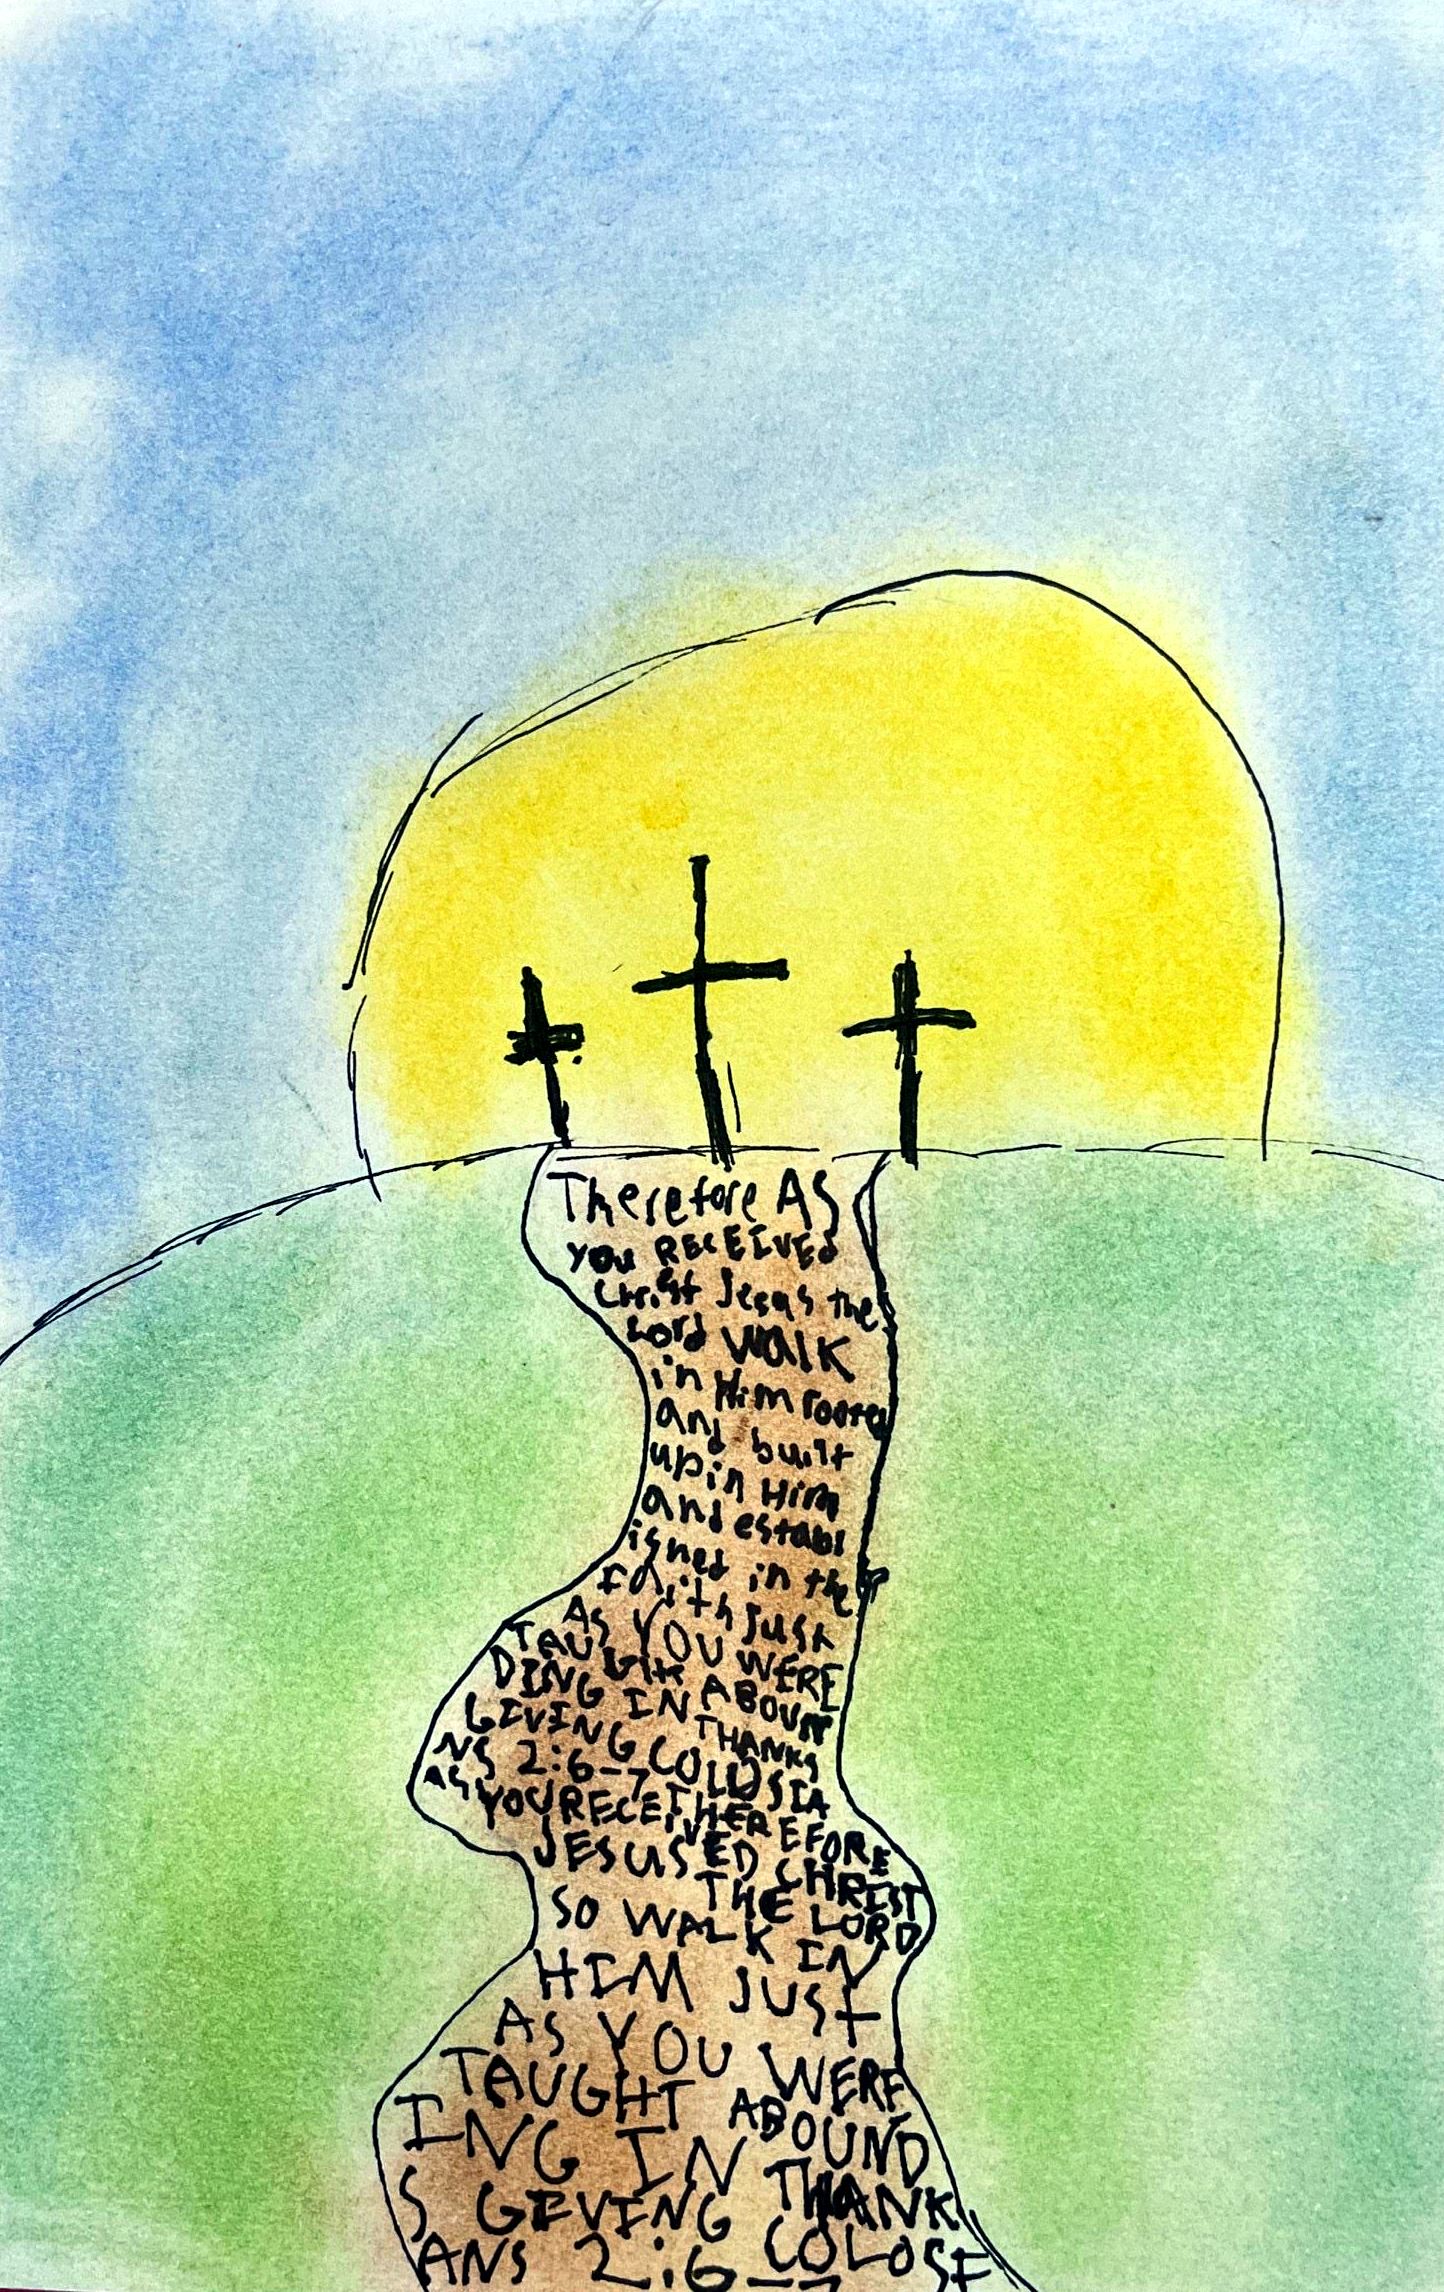 Therefore AS
you RECEIVED
Christ Jesus the
Lord WAlK
in Him rooted
and built
up in Him
and establ
ished in the
faith Just
As YOU WERE
TAUGht ABOUN
DING IN THANKS
GIVING COLOSIA
NS 2:6-7 THEREFORE
AS YOU RECEIVED CHRIST
JESUS THE LORD
SO WALK IN
HIM JUST
AS YOU WERE
TAUGHT ABOUND
ING IN THANK
S GIVING COLOSI
ANS 2:6-7